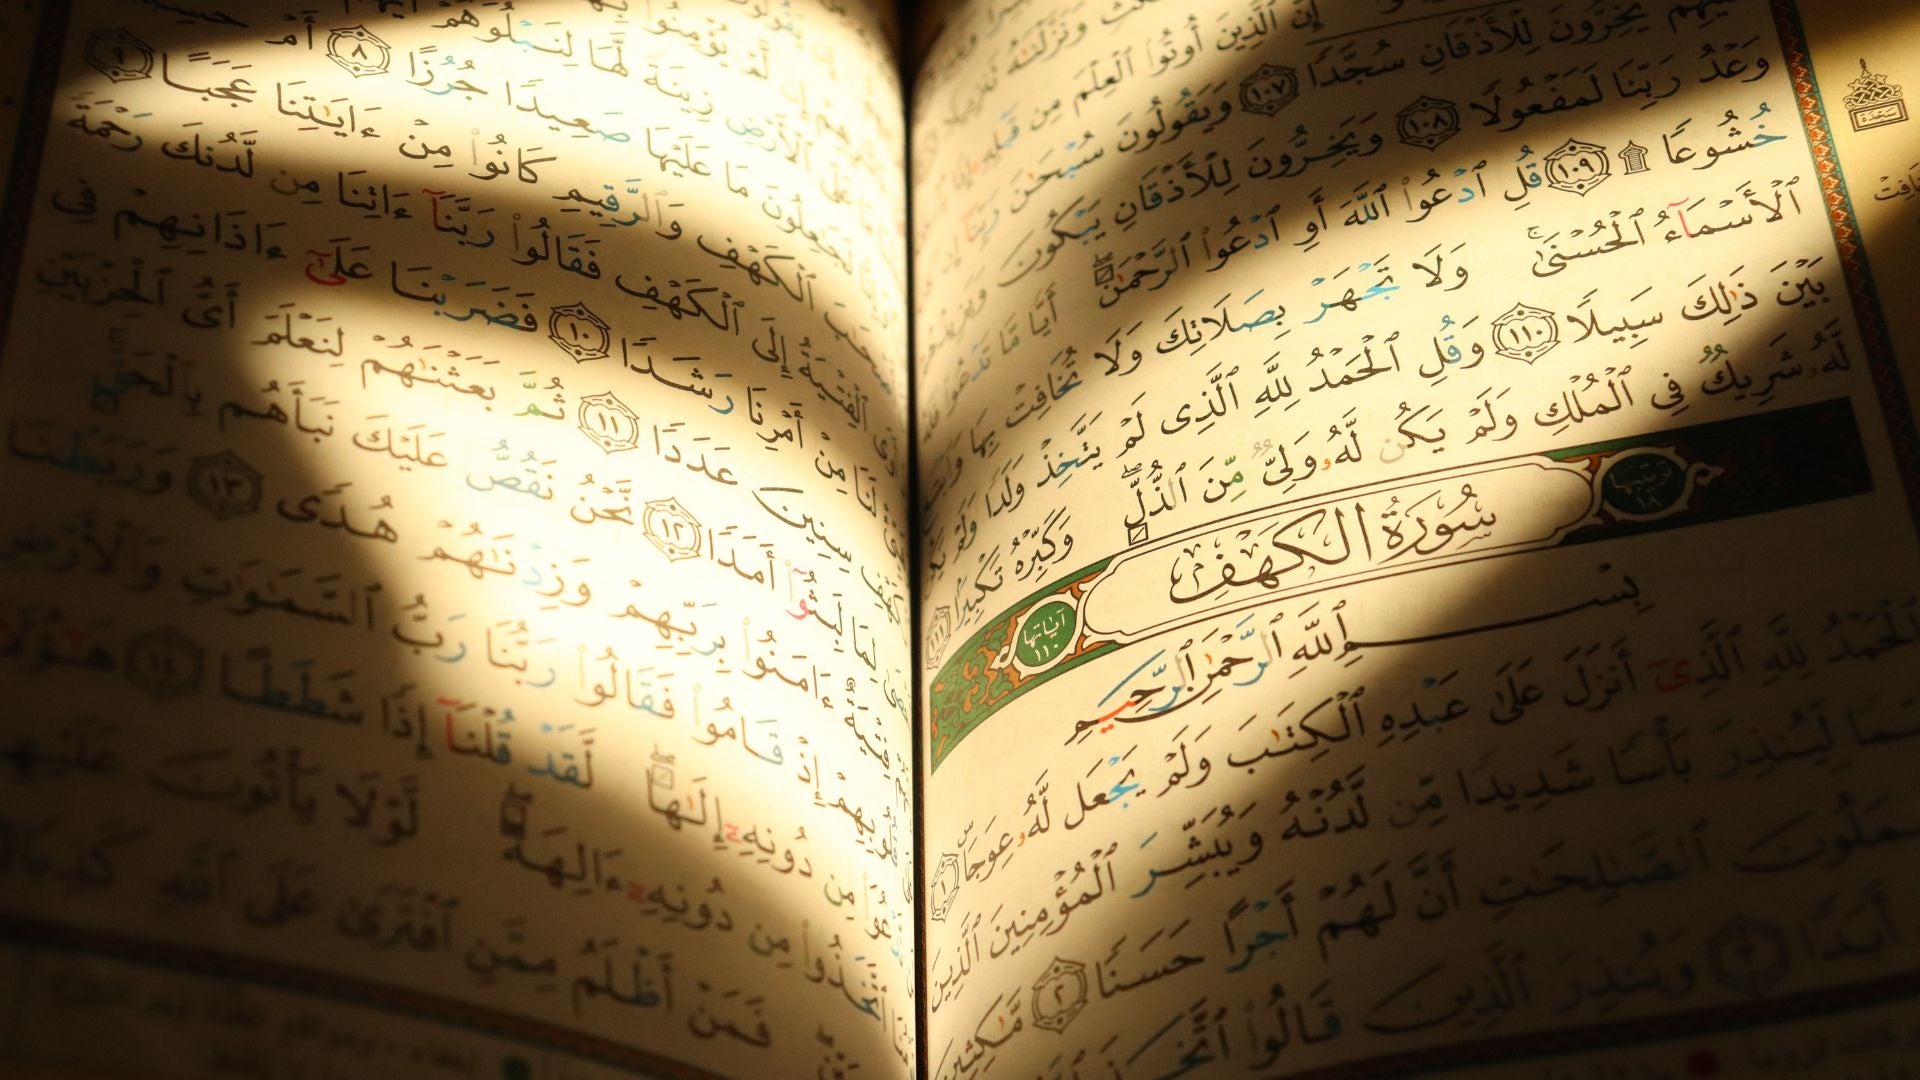 وَنَزَّلْنَٰهُ تَنزِيلًا
إِنَّ ٱلَّذِينَ أُوتُوا۟ ٱلْعِلْمَ مِن قَبْلِهِۦٓ
يَخِرُّونَ لِلْأَذْقَانِ سُجَّدًا ١٠٧ وَيَقُولُونَ سُبْحَٰنَ رَبِّنَآ
وَعْدُ رَبِّنَا لَمَفْعُولًا ١٠٨ وَيَخِرُّونَ لِلْأَذْقَانِ يَبْكُونَ وَيَزِيدُهُمْ
سَجْدَة
خُشُوعًا ۩ ١٠٩ قُلِ ٱدْعُوا۟ ٱللَّهَ أَوِ ٱدْعُوا۟ ٱلرَّحْمَٰنَ ۖ أَيًّا مَّا تَدْعُوا۟ فَلَهُ
ٱلْأَسْمَآءُ ٱلْحُسْنَىٰ ۚ وَلَا تَجْهَرْ بِصَلَاتِكَ وَلَا تُخَافِتْ بِهَا وَٱبْتَغِ
بَيْنَ ذَٰلِكَ سَبِيلًا ١١٠ وَقُلِ ٱلْحَمْدُ لِلَّهِ ٱلَّذِى لَمْ يَتَّخِذْ وَلَدًا وَلَمْ يَكُن
لَّهُۥ شَرِيكٌ فِى ٱلْمُلْكِ وَلَمْ يَكُن لَّهُۥ وَلِىٌّ مِّنَ ٱلذُّلِّ ۖ وَكَبِّرْهُ تَكْبِيرًا ١١١
ترتيبها ١٨ سُورَةُ الكَهْفِ آياتها ١١٠
بِسْمِ ٱللَّهِ ٱلرَّحْمَٰنِ ٱلرَّحِيمِ
ٱلْحَمْدُ لِلَّهِ ٱلَّذِىٓ أَنزَلَ عَلَىٰ عَبْدِهِ ٱلْكِتَٰبَ وَلَمْ يَجْعَل لَّهُۥ عِوَجَا ۜ ١
لِّيُنذِرَ بَأْسًا شَدِيدًا مِّن لَّدُنْهُ وَيُبَشِّرَ ٱلْمُؤْمِنِينَ ٱلَّذِينَ
يَعْمَلُونَ ٱلصَّٰلِحَٰتِ أَنَّ لَهُمْ أَجْرًا حَسَنًا ٢ مَّٰكِثِينَ
أَبَدًا ٣ وَيُنذِرَ ٱلَّذِينَ قَالُوا۟ ٱتَّخَذَ
ٱلْأَرْضِ زِينَةً لَّهَا لِنَبْلُوَهُمْ أَيُّهُمْ
لَجَٰعِلُونَ مَا عَلَيْهَا صَعِيدًا جُرُزًا ٨ أَمْ
ٱلْكَهْفِ وَٱلرَّقِيمِ كَانُوا۟ مِنْ ءَايَٰتِنَا عَجَبًا ٩
أَوَى ٱلْفِتْيَةُ إِلَى ٱلْكَهْفِ فَقَالُوا۟ رَبَّنَآ ءَاتِنَا مِن لَّدُنكَ رَحْمَةً
لَنَا مِنْ أَمْرِنَا رَشَدًا ١٠ فَضَرَبْنَا عَلَىٰٓ ءَاذَانِهِمْ فِى
ٱلْكَهْفِ سِنِينَ عَدَدًا ١١ ثُمَّ بَعَثْنَٰهُمْ لِنَعْلَمَ أَىُّ ٱلْحِزْبَيْنِ
لِمَا لَبِثُوٓا۟ أَمَدًا ١٢ نَّحْنُ نَقُصُّ عَلَيْكَ نَبَأَهُم بِٱلْحَقِّ
فِتْيَةٌ ءَامَنُوا۟ بِرَبِّهِمْ وَزِدْنَٰهُمْ هُدًى ١٣ وَرَبَطْنَا
قُلُوبِهِمْ إِذْ قَامُوا۟ فَقَالُوا۟ رَبُّنَا رَبُّ ٱلسَّمَٰوَٰتِ وَٱلْأَرْضِ
نَّدْعُوَا۟ مِن دُونِهِۦٓ إِلَٰهًا ۖ لَّقَدْ قُلْنَآ إِذًا شَطَطًا ١٤ هَٰٓؤُلَآءِ
ٱتَّخَذُوا۟ مِن دُونِهِۦٓ ءَالِهَةً ۖ لَّوْلَا يَأْتُونَ عَلَيْهِم
فَمَنْ أَظْلَمُ مِمَّنِ ٱفْتَرَىٰ عَلَى ٱللَّهِ كَذِبًا